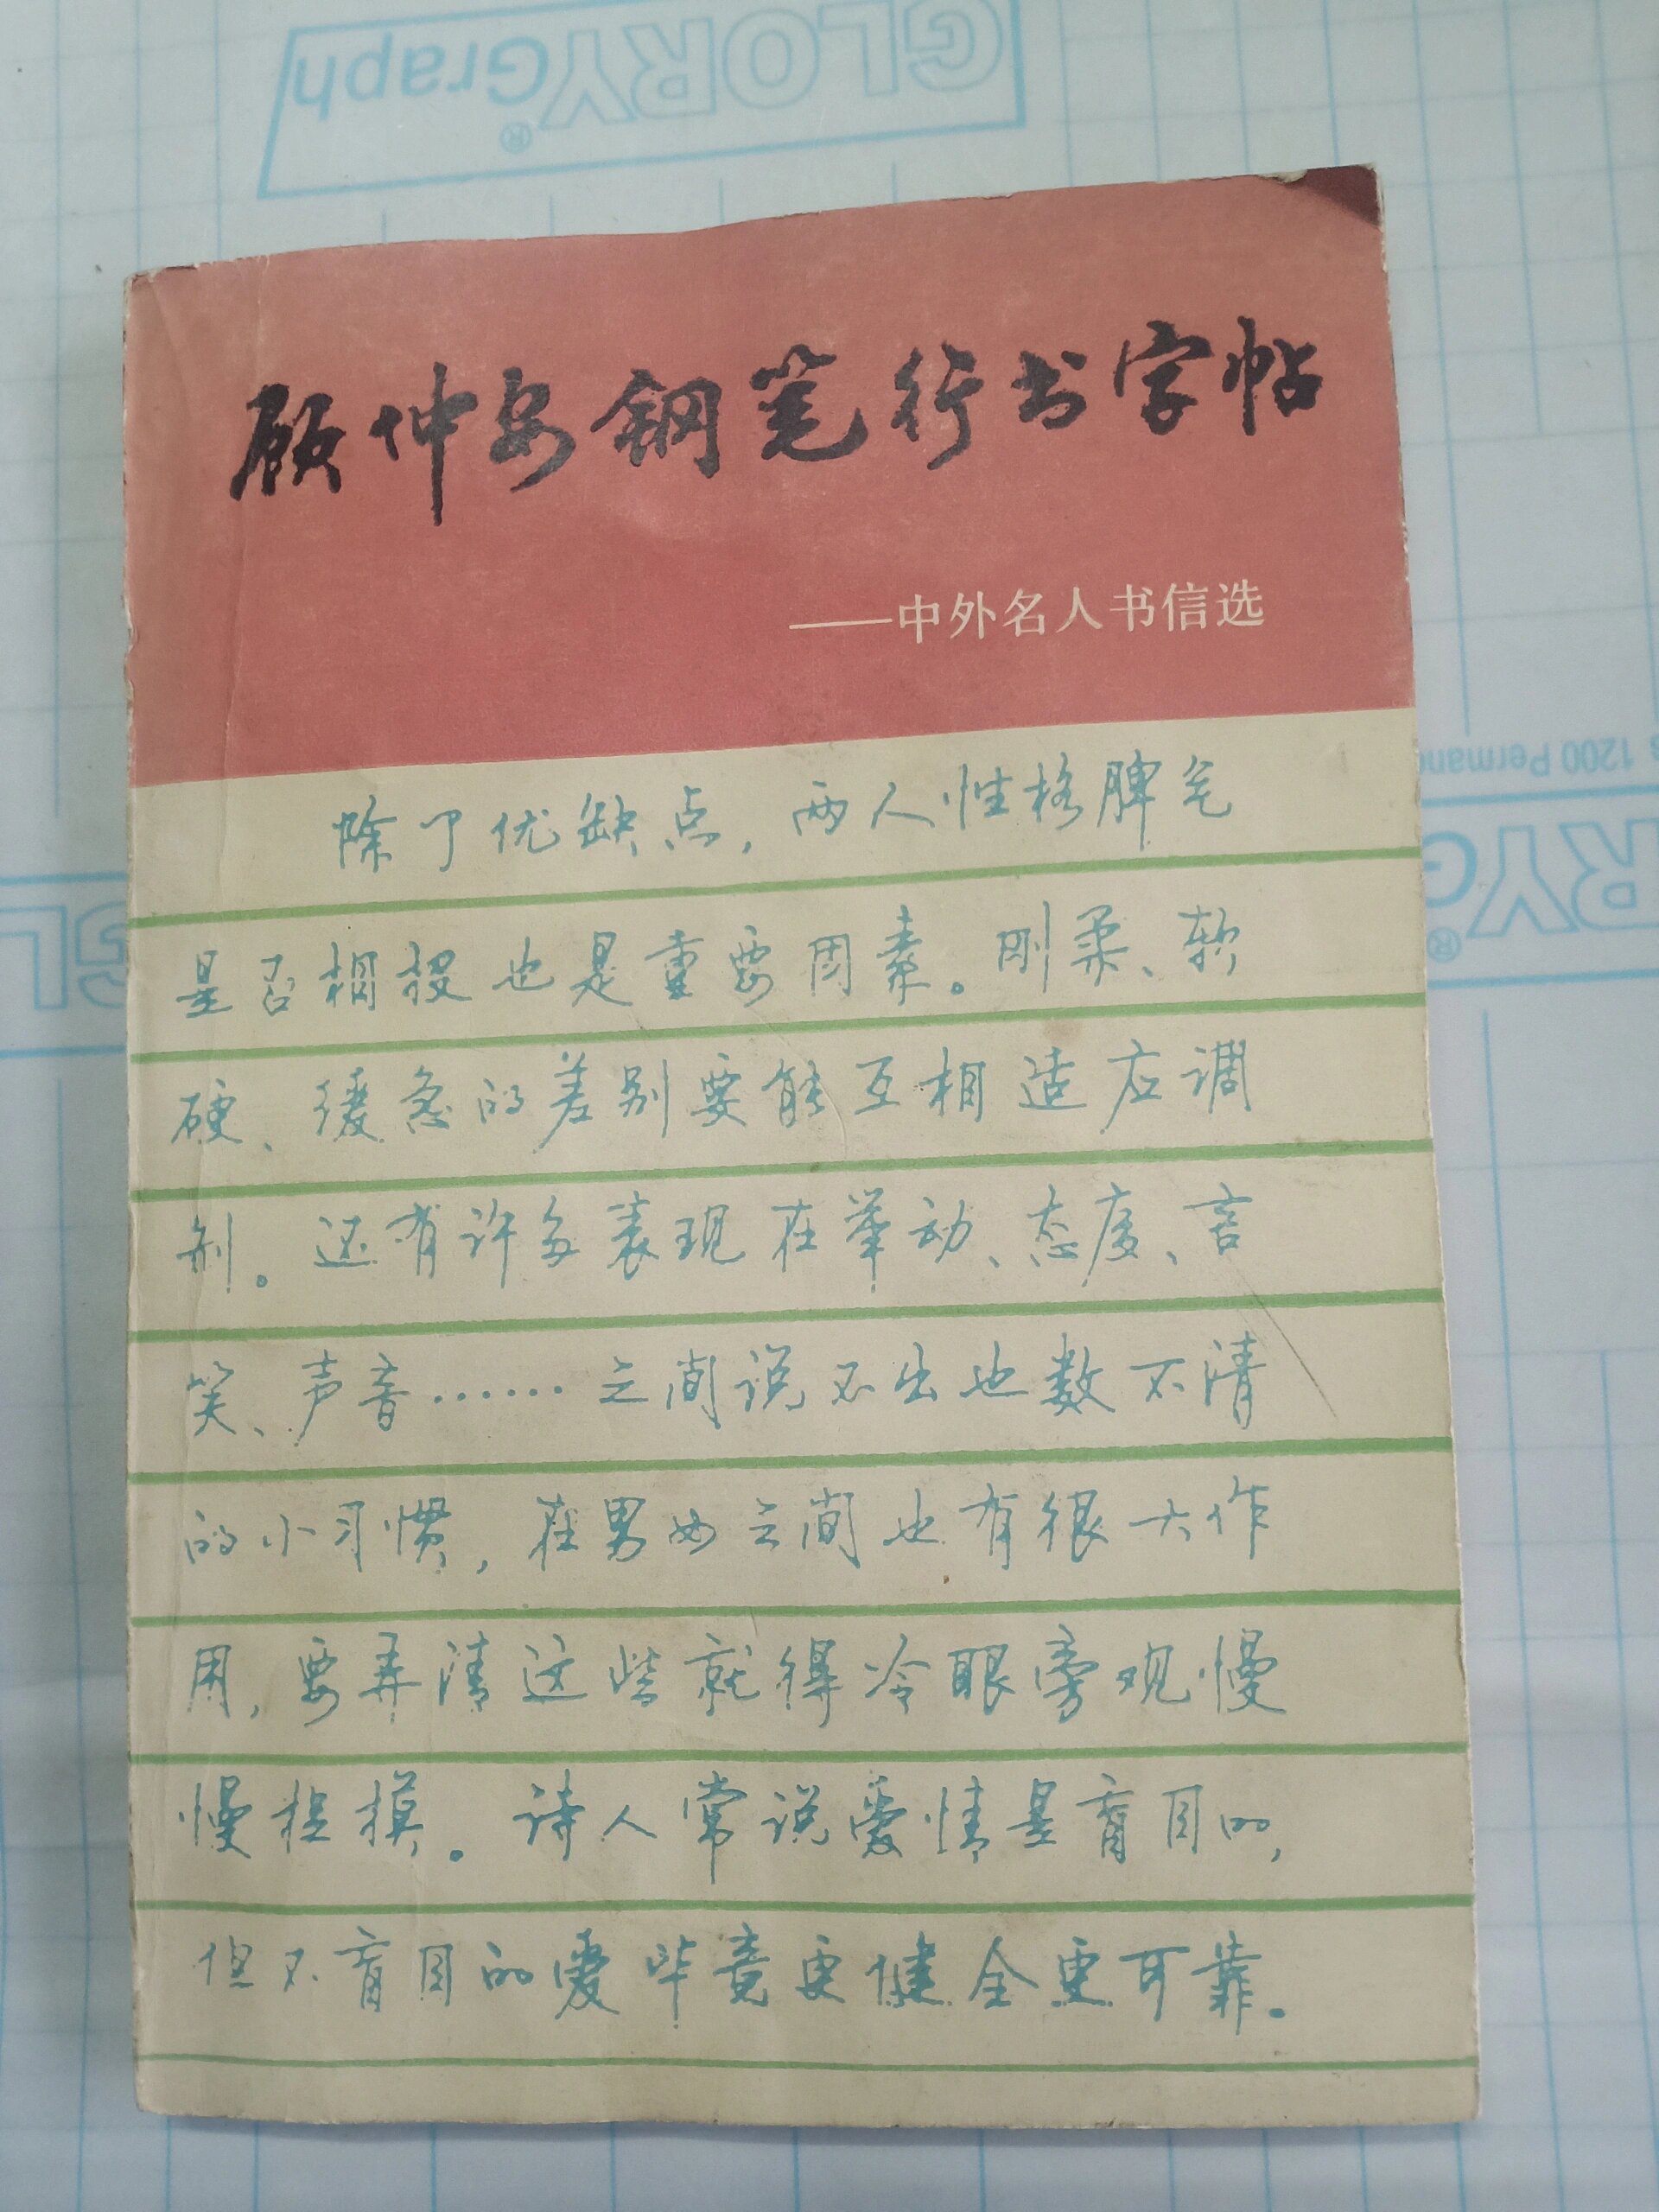 GLORYGraph®
顾仲安钢笔行书字帖
——中外名人书信选
1200 Perman
RYG
®
GL
除了优缺点，两人性格脾气
是否相投也是重要因素。刚柔、软
硬、缓急的差别要能互相适应调
剂。还有许多表现在举动、态度、言
笑、声音……之间说不出也数不清
的小习惯，在男女之间也有很大作
用，要弄清这些就得冷眼旁观慢
慢捉摸。诗人常说爱情是盲目的，
但不盲目的爱毕竟更健全更可靠。